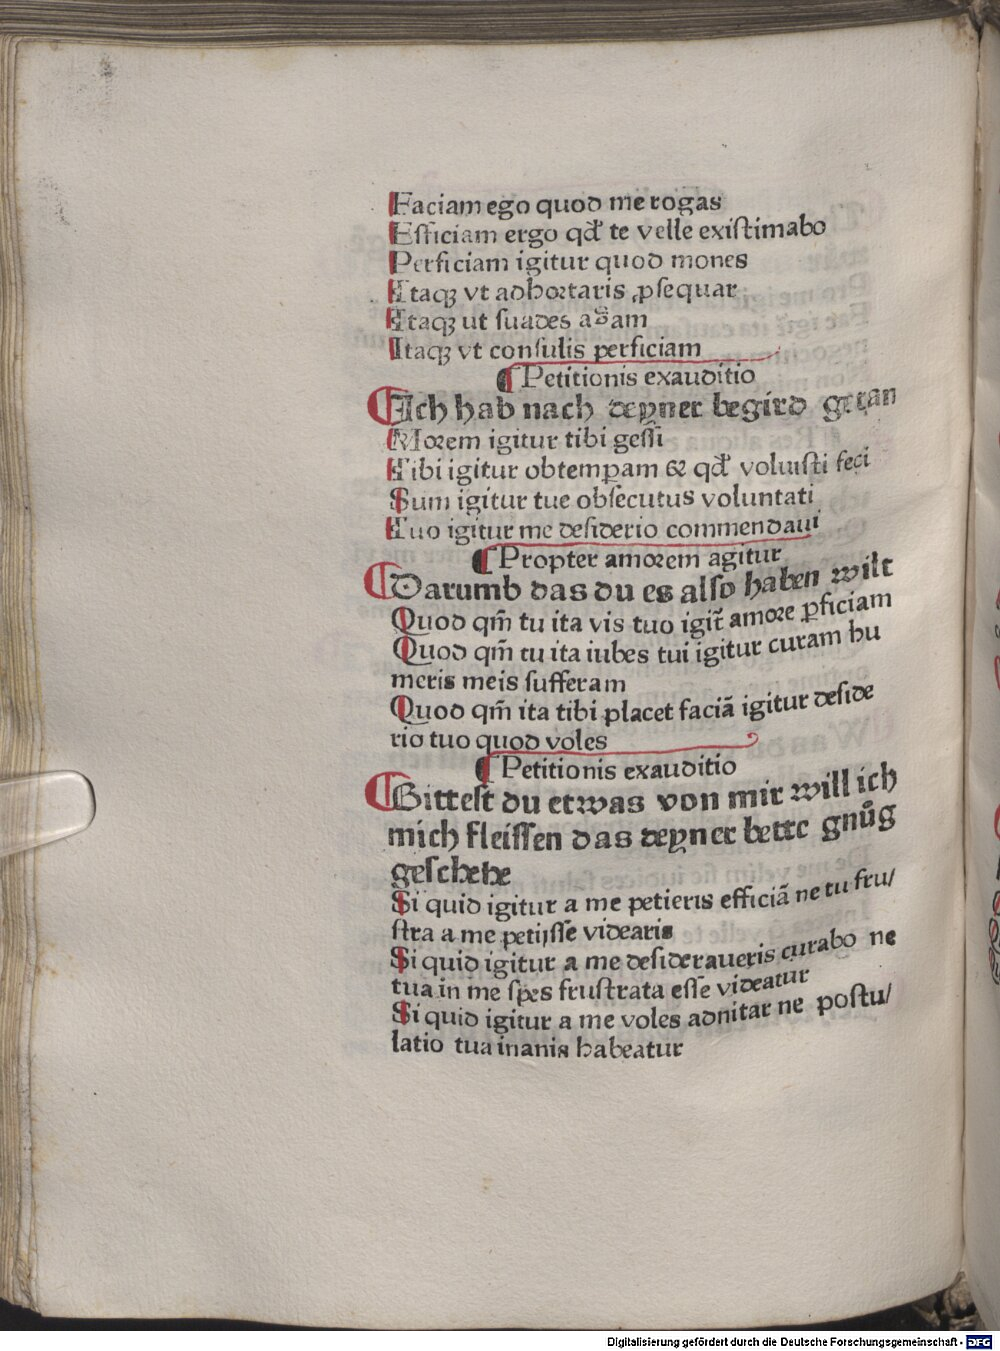 Faciam ego quod me rogas
Efficiam ergo qd̛ te velle existimabo
Perficiam igitur quod mones
Itaqꝫ vt adhortaris ꝓsequar
Itaqꝫ ut suades agam
Itaqꝫ vt consulis perficiam
¶ Petitionis exauditio
¶ Ich hab nach deyner begird getan
Morem igitur tibi gessi
Tibi igitur obtemꝑam & qd̛ voluisti feci
Sum igitur tue obsecutus voluntati
Tuo igitur me desiderio commendaui
¶ Propter amorem agitur
¶ Darumb das du es also haben wilt
Quod qm̄ tu ita vis tuo igit̄ amore ꝑficiam
Quod qm̄ tu ita iubes tui igitur curam hu
meris meis sufferam
Quod qm̄ ita tibi placet faciā igitur deside
rio tuo quod voles
¶ Petitionis exauditio
¶ Bittest du etwas von mir will ich
mich fleissen das deyner bette gnůg
geschehe
Si quid igitur a me petieris efficiā ne tu fru/
stra a me petijsse videaris
Si quid igitur a me desideraueris curabo ne
tua in me spes frustrata esse videatur
Si quid igitur a me voles adnitar ne postu/
latio tua inanis habeatur
Digitalisierung gefördert durch die Deutsche Forschungsgemeinschaft - DFG